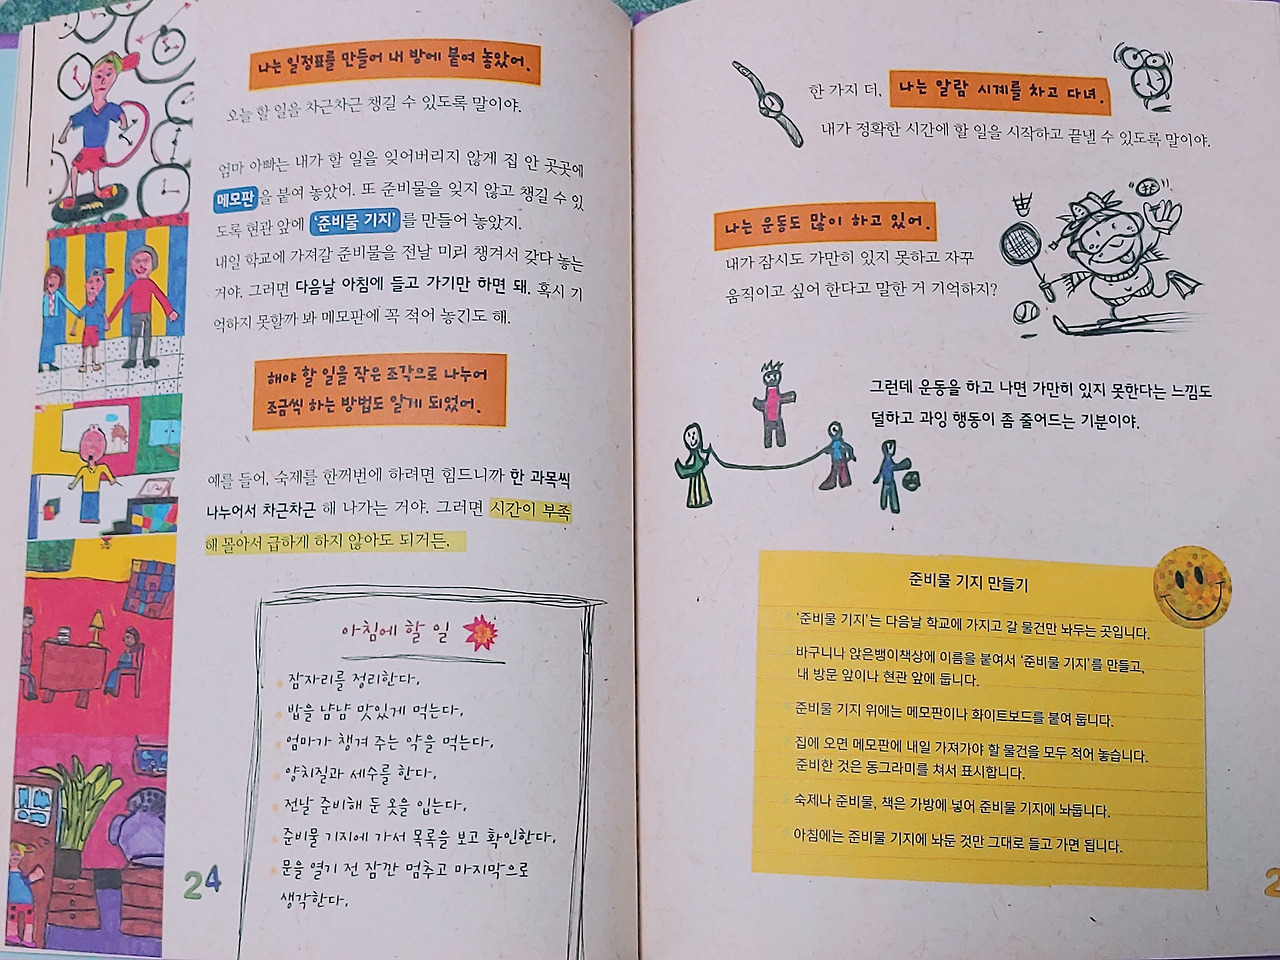 나는 일정표를 만들어 내 방에 붙여 놓았어.
오늘 할 일을 차근차근 챙길 수 있도록 말이야.
엄마 아빠는 내가 할 일을 잊어버리지 않게 집 안 곳곳에
메모판을 붙여 놓았어. 또 준비물을 잊지 않고 챙길 수 있
도록 현관 앞에 '준비물 기지'를 만들어 놓았지.
내일 학교에 가져갈 준비물을 전날 미리 챙겨서 갖다 놓는
거야. 그러면 다음날 아침에 들고 가기만 하면 돼. 혹시 기
억하지 못할까 봐 메모판에 꼭 적어 놓기도 해.
해야 할 일을 작은 조각으로 나누어
조금씩 하는 방법도 알게 되었어.
예를 들어, 숙제를 한꺼번에 하려면 힘드니까 한 과목씩
나누어서 차근차근 해 나가는 거야. 그러면 시간이 부족
해 몰아서 급하게 하지 않아도 되거든.
아침에 할 일
잠자리를 정리한다.
밥을 냠냠 맛있게 먹는다.
엄마가 챙겨 주는 약을 먹는다.
양치질과 세수를 한다.
전날 준비해 둔 옷을 입는다.
준비물 기지에 가서 목록을 보고 확인한다.
문을 열기 전 잠깐 멈추고 마지막으로
생각한다.
24
한 가지 더, 나는 알람 시계를 차고 다녀.
내가 정확한 시간에 할 일을 시작하고 끝낼 수 있도록 말이야.
나는 운동도 많이 하고 있어.
내가 잠시도 가만히 있지 못하고 자꾸
움직이고 싶어 한다고 말한 거 기억하지?
그런데 운동을 하고 나면 가만히 있지 못한다는 느낌도
덜하고 과잉 행동이 좀 줄어드는 기분이야.
준비물 기지 만들기
'준비물 기지'는 다음날 학교에 가지고 갈 물건만 놔두는 곳입니다.
바구니나 앉은뱅이책상에 이름을 붙여서 '준비물 기지'를 만들고,
내 방문 앞이나 현관 앞에 둡니다.
준비물 기지 위에는 메모판이나 화이트보드를 붙여 둡니다.
집에 오면 메모판에 내일 가져가야 할 물건을 모두 적어 놓습니다.
준비한 것은 동그라미를 쳐서 표시합니다.
숙제나 준비물, 책은 가방에 넣어 준비물 기지에 놔둡니다.
아침에는 준비물 기지에 놔둔 것만 그대로 들고 가면 됩니다.